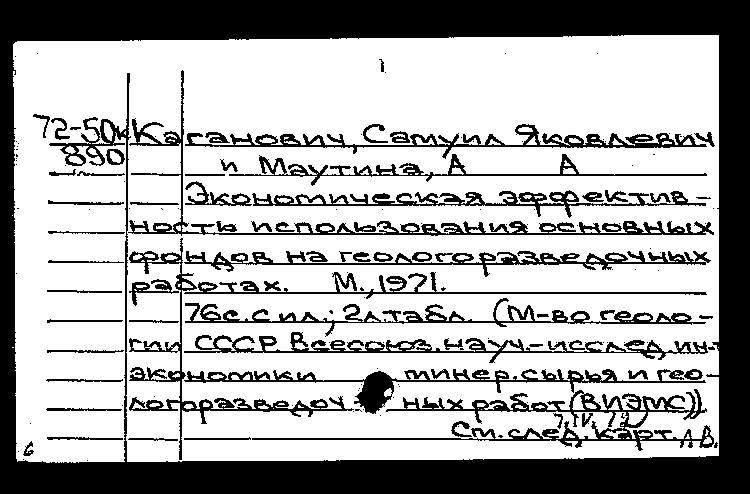 72-50к Каганович, Самуил Яковлевич
890 и Маутина, А А
Экономическая эффектив-
ность использования основных
фондов на геологоразведочных
работах. М., 1971.
76с. с ил.; 2л. табл. (М-во геоло-
гии СССР. Всесоюз. науч.-исслед. ин-т
экономики минер. сырья и гео-
логоразведоч ных работ (ВИЭМС))
7.IV.72
См. след. карт. Л.В.
6